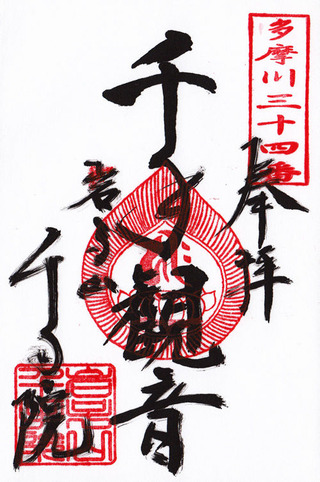 多摩川三十四番
奉拝
千手観音
岩子山
千手院